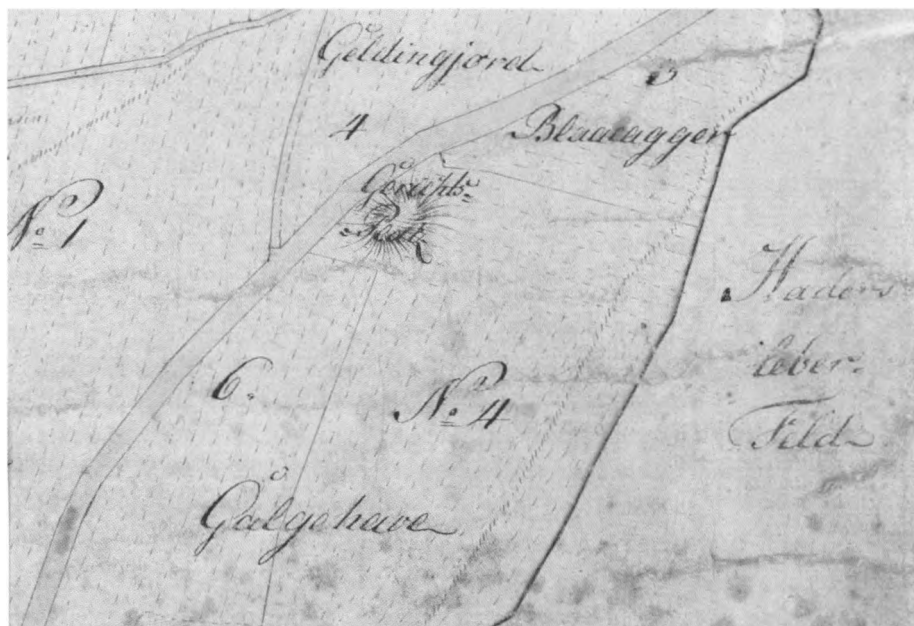 Geldingjord
4
Blaaeagger
Gerichts-
No 1
Haders
leber-
Feld
6.
No 4
Galgehave